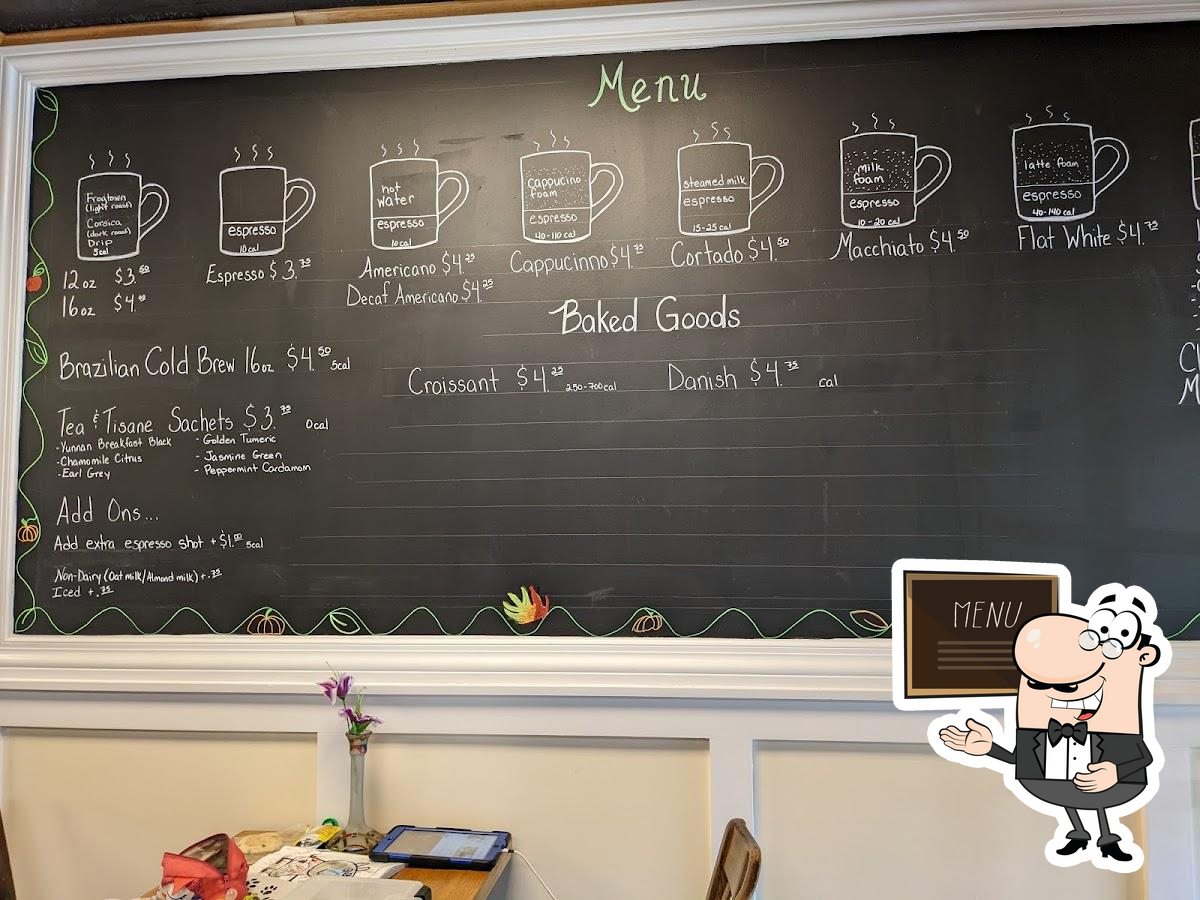 Menu
Frogtown
(light roast)
Corsica
(dark roast)
Drip
5cal
12 oz $3.50
16 oz $4.00
espresso
10cal
Espresso $3.75
hot
water
espresso
10cal
Americano $4.25
Decaf Americano $4.25
cappucino
foam
espresso
40-110 cal
Cappucinno $4.75
steamed milk
espresso
15-25 cal
Cortado $4.50
milk
foam
espresso
10-20 cal
Macchiato $4.50
latte foam
espresso
40-140 cal
Flat White $4.75
Baked Goods
Croissant $4.25 250-700cal Danish $4.75 cal
Brazilian Cold Brew 16oz $4.50 5cal
Tea & Tisane Sachets $3.75 0cal
-Yunnan Breakfast Black
-Chamomile Citrus
-Earl Grey
- Golden Tumeric
- Jasmine Green
- Peppermint Cardamom
Add Ons...
Add extra espresso shot +$1.00 5cal
Non-Dairy (Oat milk/Almond milk) +.75
Iced +.75
MENU